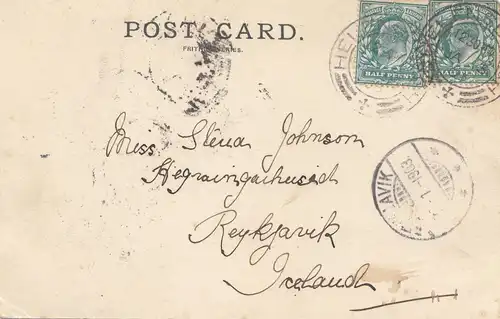 POST CARD.
FRITH'S SERIES.
HALF PENNY
HALF PENNY
HEL
Miss Stena Johnson
Hegningarhusid
Reykjavik
Iceland
AVIK
1-1903